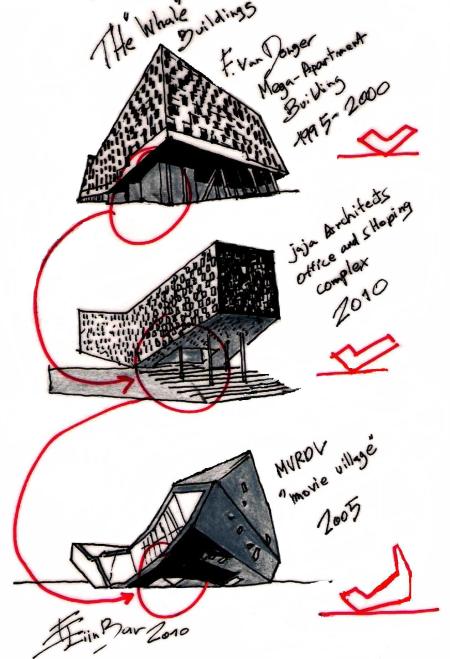 THe "Whale"
Buildings
F. Van Donger
Mega-Apartment
Building
1995-2000
jaja Architects
office and sHoping
complex
2010
MVRDV
"movie village"
2005
2010